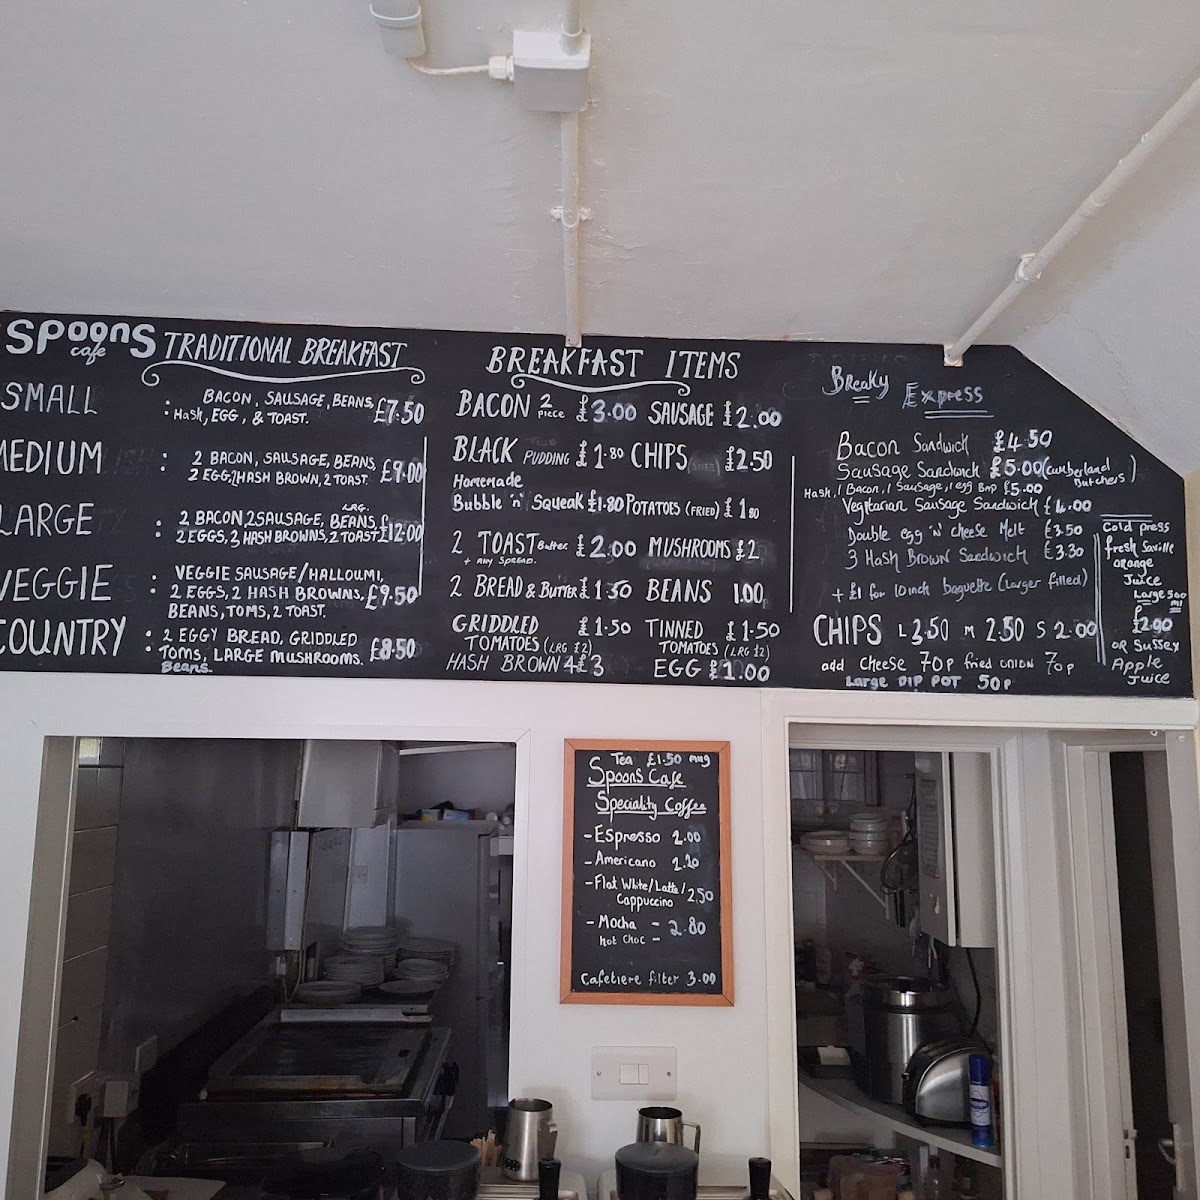 SPOONS
cafe
TRADITIONAL BREAKFAST
SMALL : BACON, SAUSAGE, BEANS,
Hash, EGG, & TOAST. £7.50
MEDIUM : 2 BACON, SAUSAGE, BEANS,
2 EGG, 2 HASH BROWN, 2 TOAST. £9.00
LARGE : 2 BACON, 2 SAUSAGE, LRG. BEANS,
2 EGGS, 3 HASH BROWNS, 2 TOAST £12.00
VEGGIE : VEGGIE SAUSAGE/HALLOUMI,
2 EGGS, 2 HASH BROWNS,
BEANS, TOMS, 2 TOAST. £9.50
COUNTRY : 2 EGGY BREAD, GRIDDLED
TOMS, LARGE MUSHROOMS. £8.50
Beans
BREAKFAST ITEMS
BACON 2 piece £3.00 SAUSAGE £2.00
BLACK PUDDING £1.80 CHIPS £2.50
Homemade
Bubble 'n' Squeak £1.80 POTATOES (FRIED) £1.80
2 TOAST Butter £2.00 MUSHROOMS £2
+ Any Spread
2 BREAD & Butter £1.30 BEANS 1.00
GRIDDLED £1.50 TINNED £1.50
TOMATOES (LRG £2) TOMATOES (LRG £2)
HASH BROWN 4 £3 EGG £1.00
Breaky Express
Bacon Sandwich £4.50
Sausage Sandwich £5.00 (Cumberland Butchers)
Hash, 1 Bacon, 1 Sausage, 1 egg Bap £5.00
Vegetarian Sausage Sandwich £4.00
Double egg 'n' cheese Melt £3.50
3 Hash Brown Sandwich £3.30
+ £1 for 10 inch baguette (Larger filled)
CHIPS L 3.50 M 2.50 S 2.00
add cheese 70p fried onion 70p
Large DIP POT 50p
Cold press
fresh Saville
orange
Juice
Large 500
ml
£2.90
OR Sussex
Apple
Juice
Tea £1.50 mug
Spoons Cafe
Speciality Coffee
- Espresso 2.00
- Americano 2.20
- Flat White/Latte/
Cappuccino 2.50
- Mocha - 2.80
hot choc -
Cafetiere filter 3.00